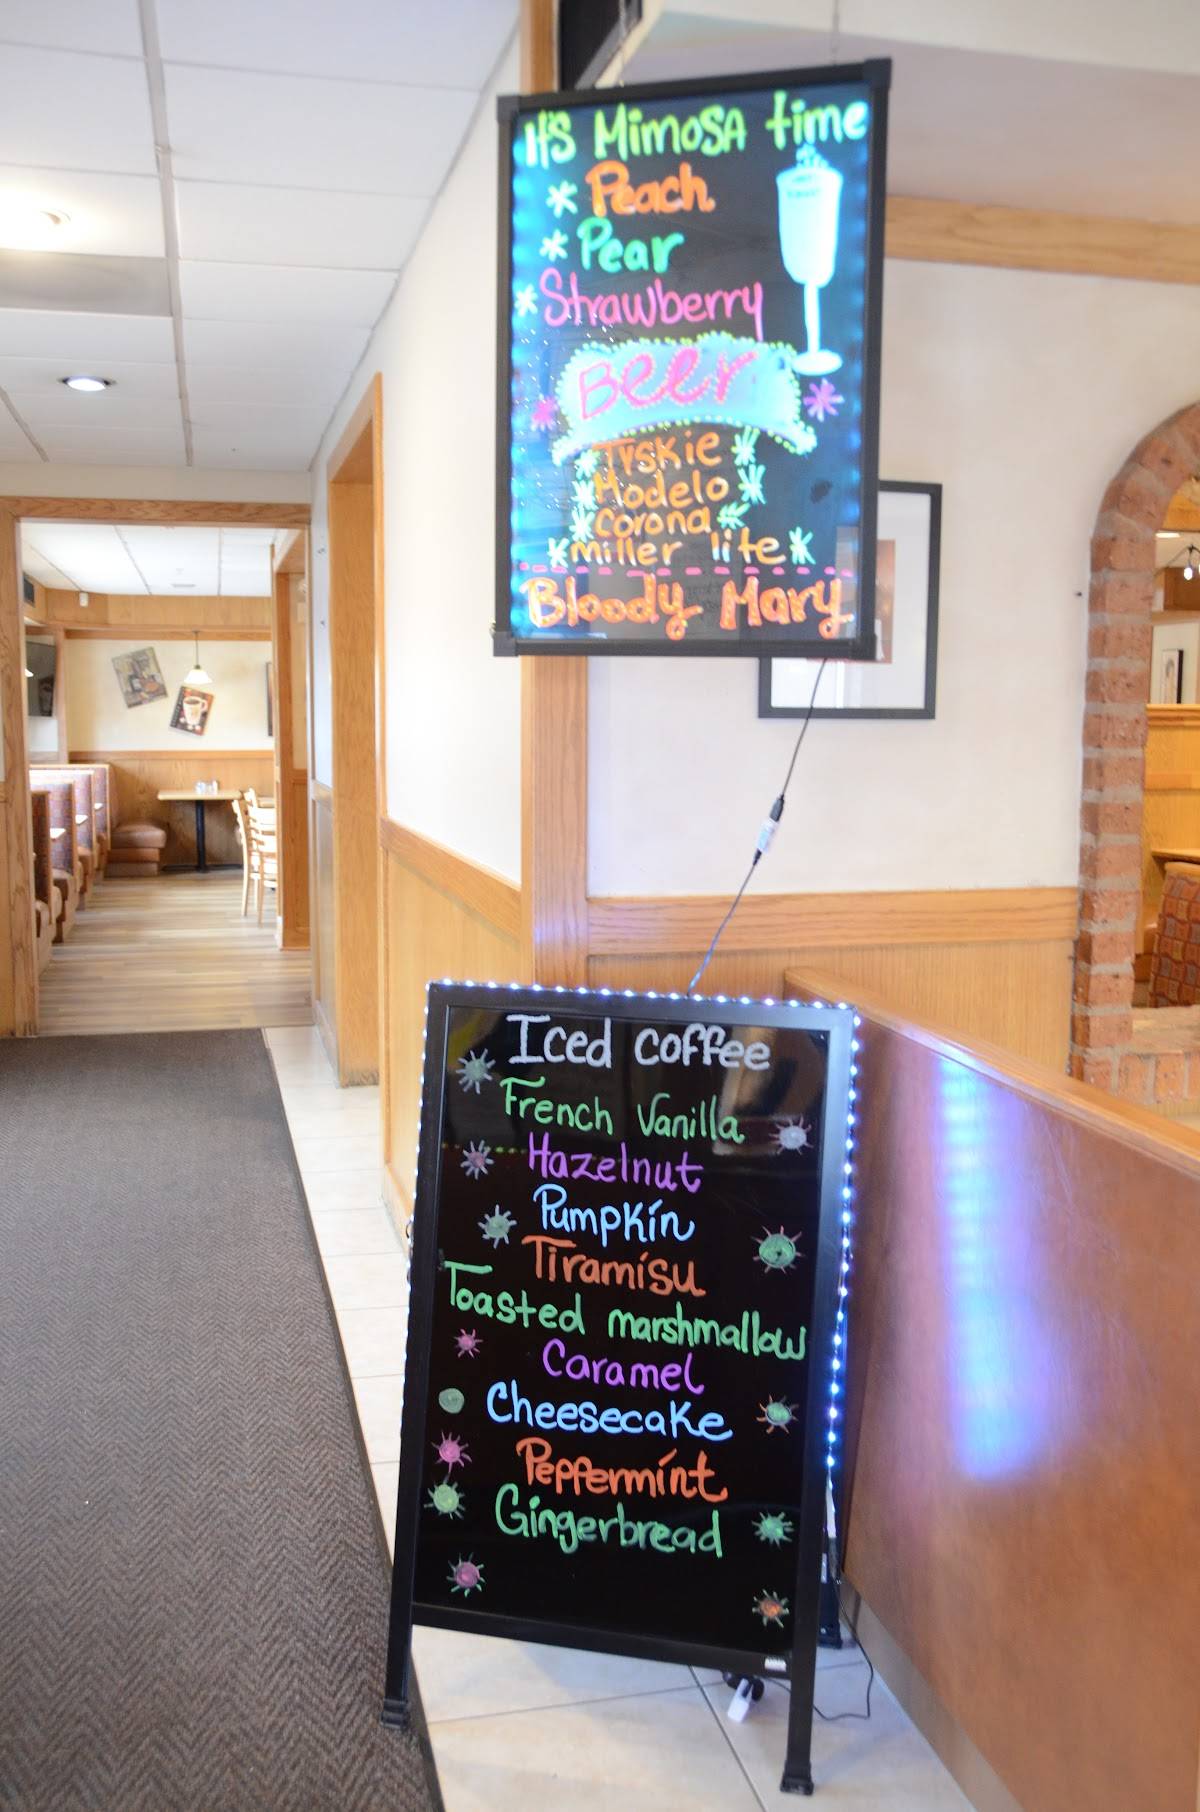 It's Mimosa time
Peach
Pear
Strawberry
Beer
Tyskie
Modelo
Corona
miller lite
Bloody Mary
Iced coffee
French Vanilla
Hazelnut
Pumpkin
Tiramisu
Toasted marshmallow
Caramel
Cheesecake
Peppermint
Gingerbread